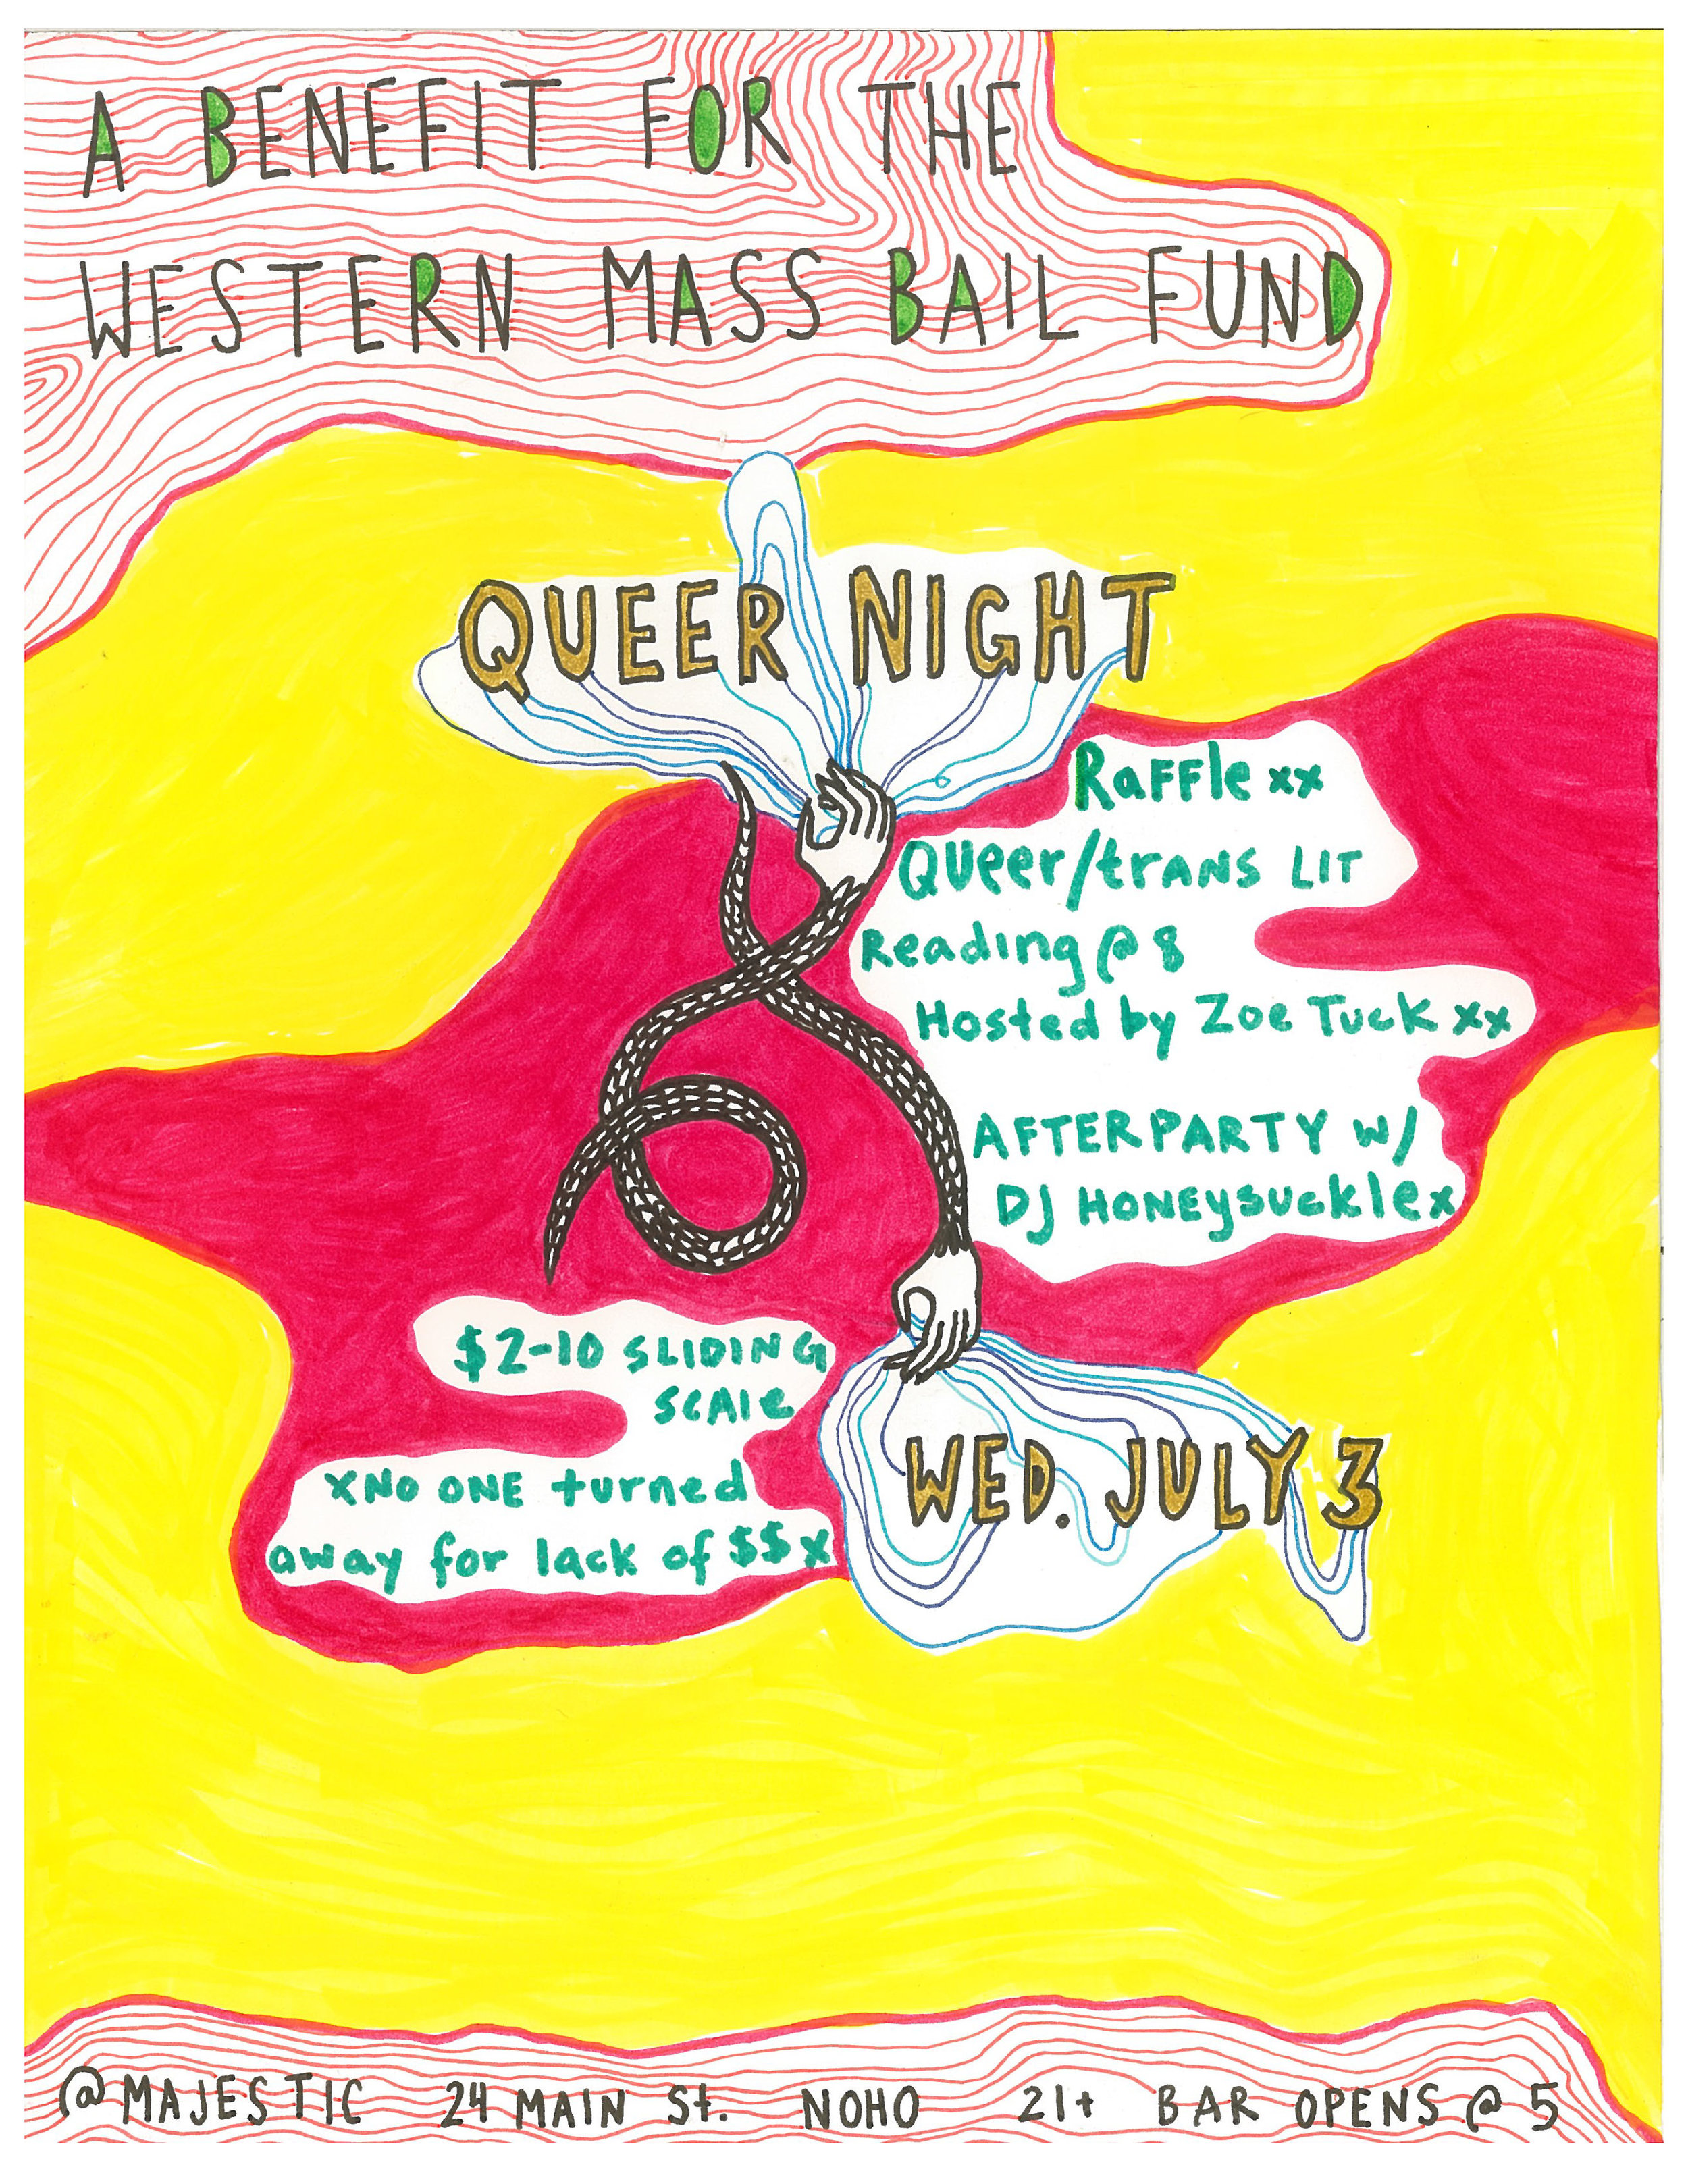 A BENEFIT FOR THE
WESTERN MASS BAIL FUND
QUEER NIGHT
Raffle xx
Queer/trans Lit
Reading @ 8
Hosted by Zoe Tuck xx
AFTERPARTY W/
DJ HONEYSUCKLE x
$2-10 SLIDING
SCALE
x NO ONE turned
away for lack of $$ x
WED. JULY 3
@ MAJESTIC 24 MAIN St. NOHO 21+ BAR OPENS @ 5